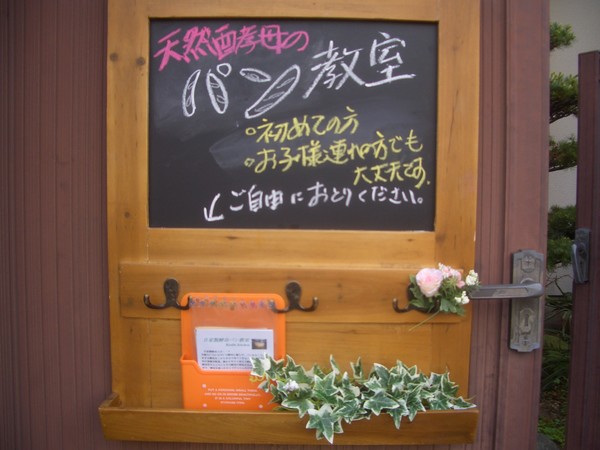 天然酵母の
パン教室
○初めての方
○お子様連れの方でも
大丈夫です。
↙ご自由におとりください。